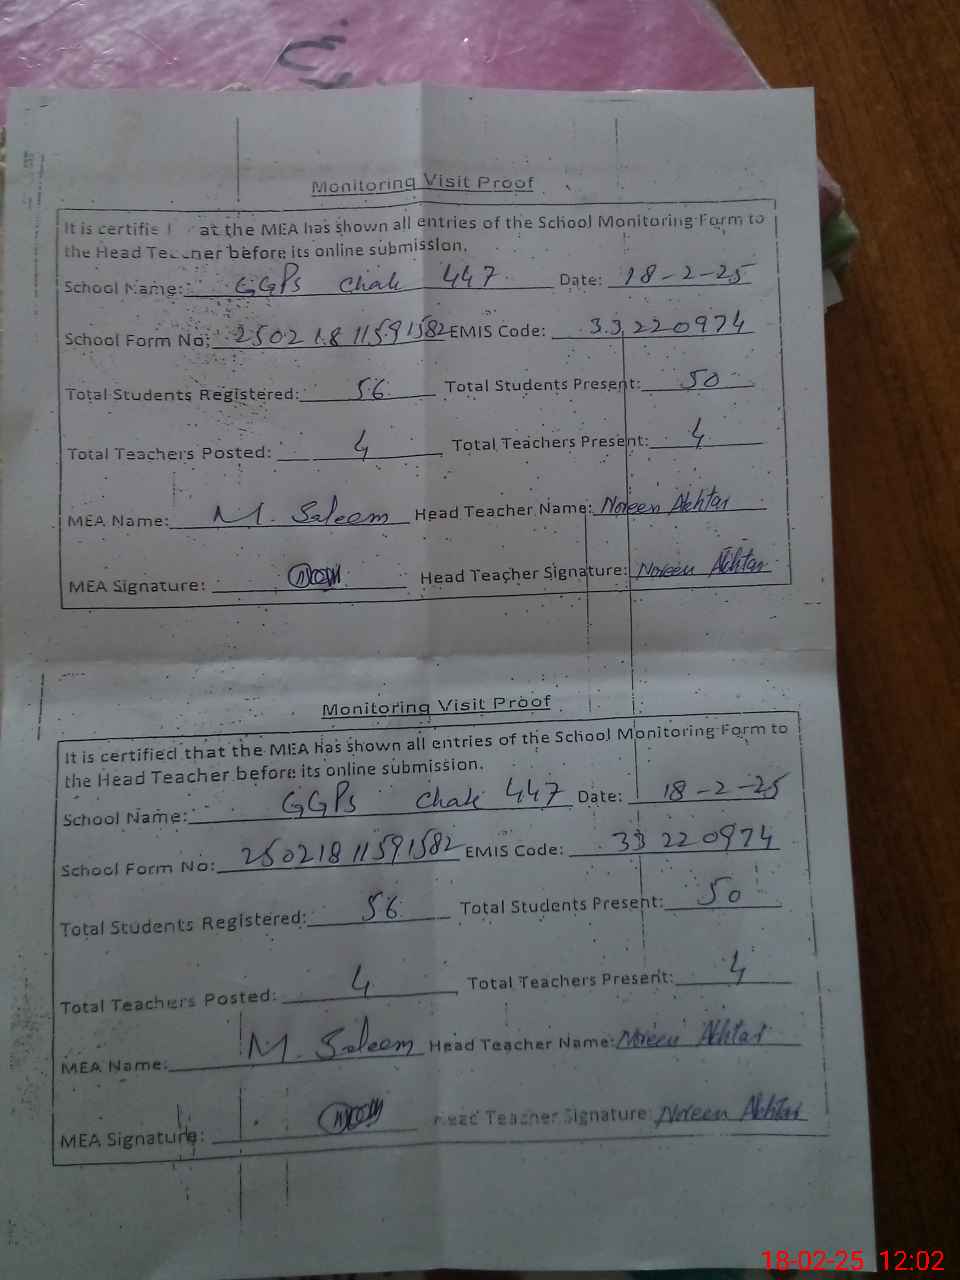 Monitoring Visit Proof
It is certifie at the MEA has shown all entries of the School Monitoring Form to
the Head Teacher before its online submission.
School Name: GGPS Chak 447 Date: 18-2-25
School Form No: 25021811591582 EMIS Code: 33220974
Total Students Registered: 56 Total Students Present: 50
Total Teachers Posted: 4 Total Teachers Present: 4
MEA Name: M. Saleem Head Teacher Name: Noreen Akhtar
MEA Signature: Head Teacher Signature: Noreen Akhtar
Monitoring Visit Proof
It is certified that the MEA has shown all entries of the School Monitoring Form to
the Head Teacher before its online submission.
School Name: GGPS Chak 447 Date: 18-2-25
School Form No: 25021811591582 EMIS Code: 33220974
Total Students Registered: 56 Total Students Present: 50
Total Teachers Posted: 4 Total Teachers Present: 4
MEA Name: M. Saleem Head Teacher Name: Noreen Akhtar
MEA Signature: Head Teacher Signature: Noreen Akhtar
18-02-25 12:02